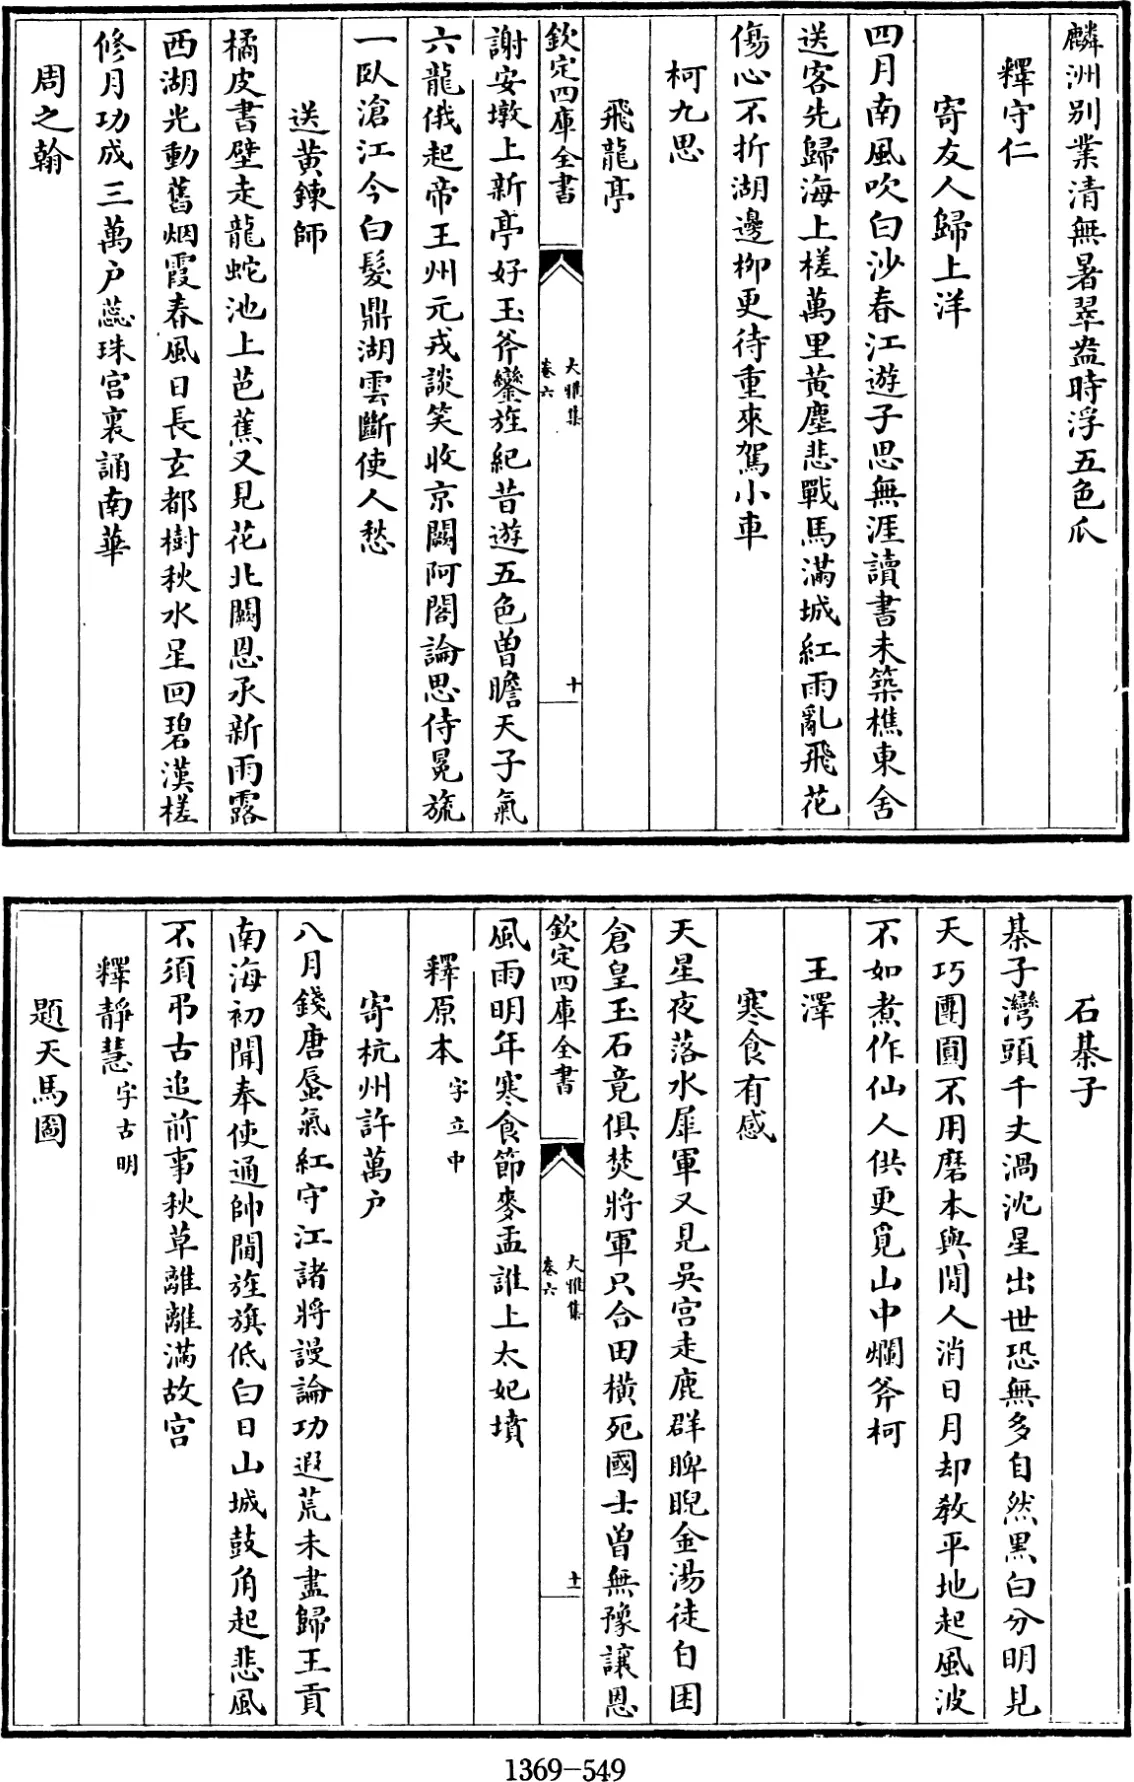 麟洲别業清無暑翠盎時浮五色瓜
釋守仁
寄友人歸上洋
四月南風吹白沙春江遊子思無涯讀書未築樵東舍
送客先歸海上槎萬里黄塵悲戰馬滿城紅雨亂飛花
傷心不折湖邊柳更待重來駕小車
柯九思
飛龍亭
欽定四庫全書
大雅集
卷六
十
謝安墩上新亭好玉斧鑾旌紀昔遊五色曽瞻天子氣
六龍俄起帝王州元戎談笑收京闕阿閣論思侍冕旒
一臥滄江今白髮鼎湖雲斷使人愁
送黄鍊師
橘皮書壁走龍蛇池上芭蕉又見花北闕恩承新雨露
西湖光動舊烟霞春風日長玄都樹秋水星回碧漢槎
修月功成三萬户蕊珠宫裏誦南華
周之翰
石棊子
棊子灣頭千丈渦沈星出世恐無多自然黒白分明見
天巧團圓不用磨本與閒人消日月却教平地起風波
不如煮作仙人供更覓山中爛斧柯
王澤
寒食有感
天星夜落水犀軍又見吳宫走鹿群睥睨金湯徒自困
倉皇玉石竟俱焚將軍只合田横死國士曽無豫讓恩
欽定四庫全書
大雅集
卷六
十一
風雨明年寒食節麥盂誰上太妃墳
釋原本字立中
寄杭州許萬户
八月錢唐蜃氣紅守江諸將謾論功遐荒未盡歸王貢
南海初聞奉使通帥閫旌旗低白日山城鼓角起悲風
不須弔古追前事秋草離離滿故宫
釋靜慧字古明
題天馬圖
1369-549